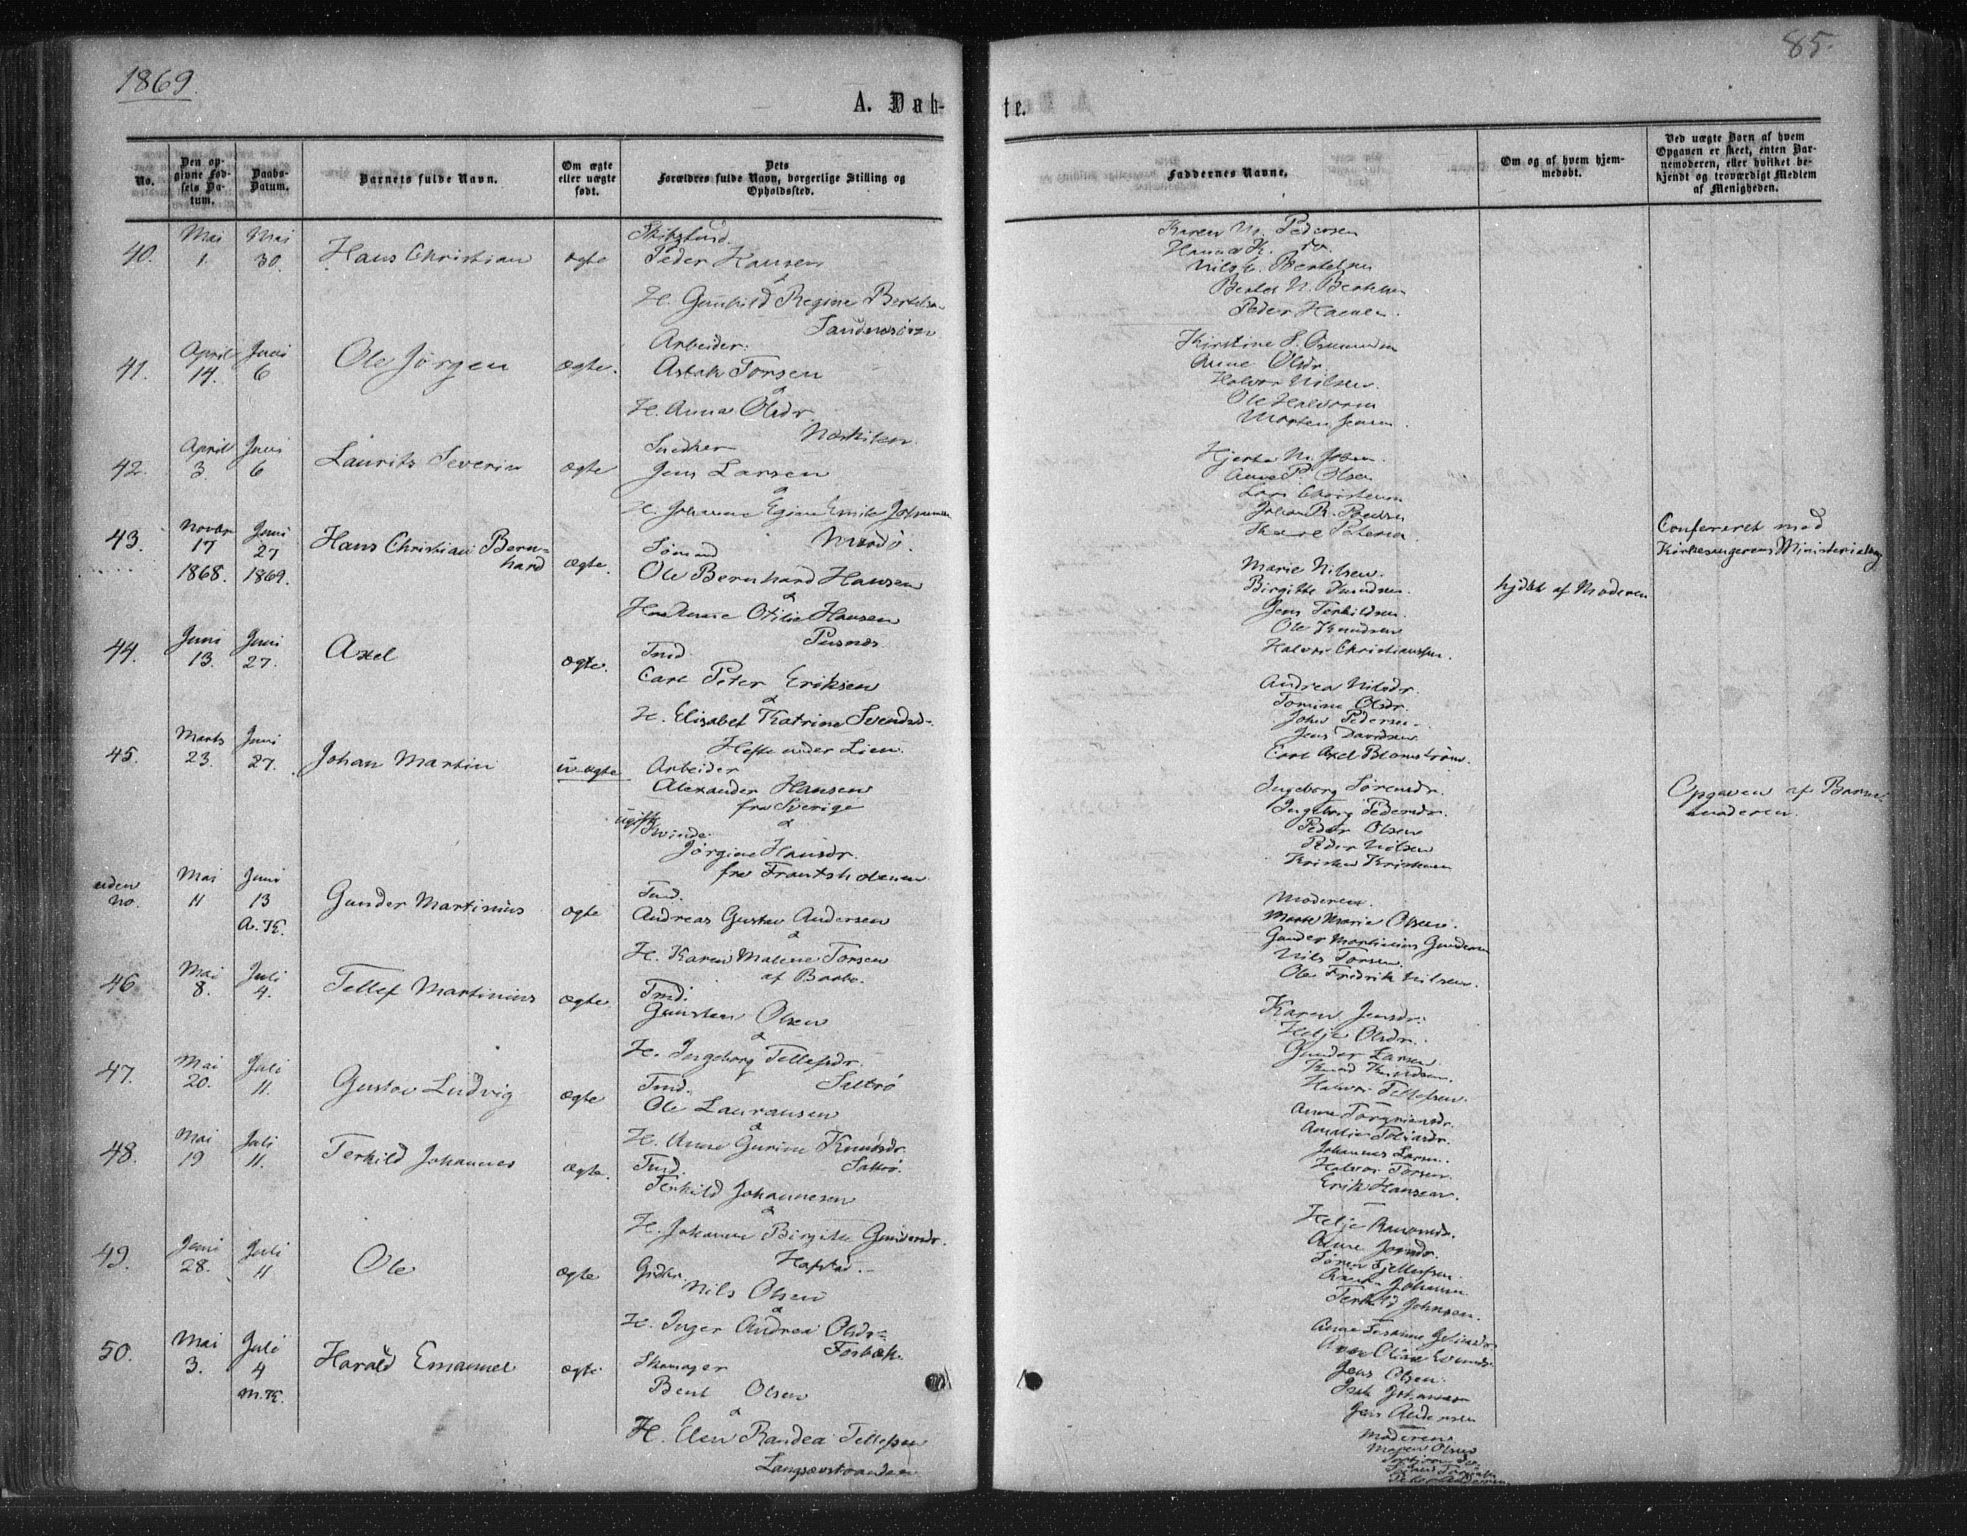 1869.
85.
A. Døb-
te.
No.
Den op-
givne Fød-
sels Da-
tum.
Daabs-
Datum.
Barnets fulde Navn.
Om ægte
eller uægte
født.
Dets
Forældres fulde Navn, borgerlige Stilling og
Opholdssted.
Faddernes Navne.
Om og af hvem hjem-
medøbt.
Ved uægte Barn af hvem
Opgaven er skeet, enten Bar-
nemoderen, eller hvilket be-
kjendt og troværdigt Medlem
af Menigheden.
40.
Mai
1.
Mai
30.
Hans Christian
ægte
Peder Hansen
&
H. Gunhild Regine Bertelsen
Karen M. Pedersen
Hanna K. do.
Nils Bertelsen
Bertel N. Bertelsen
Peder Hansen.
41.
April
14.
Juni
6
Ole Jörgen
ægte.
Arbeider.
Aslak Torsen
&
H. Anna Olsdr.
Næskilen
Kirstine S.
Anne Olsdr.
Halvor Nilsen.
Ole Halvorsen
Morten Jensen.
42.
April
3.
Juni
6
Laurits Severin
ægte
Snedker
Jens Larsen
&
H. Johanne Egine Emilie
Anne P. Olsen
Lars Christensen
43.
Novbr
17
1868.
Juni
27
1869.
Hans Christian Bern-
hard
ægte.
Sömand
Ole Bernhard Hansen
&
Otilie Hansen
Marie Nilsen.
Birgitte Knudsen.
Jens Terkildsen.
Ole Knudsen
Halvor Christiansen.
hjdbt af Moderen
Confereret med
Kirkesangerens Ministerialbog
44.
Juni
13.
Juni
27.
Axel
ægte.
Tmd.
Carl Peter Eriksen
&
H. Elisabet Katrine Svendsd.
Hefte under Lien.
Andrea Nilsdr.
Tomine Olsdr.
John Pedersen.
Jens Davidsen
Carl Axel Blomström.
45.
Marts
23.
Juni
27.
Johan Martin
uægte
Arbeider
Alexander Hansen
fra Sverige
&
ugift
Kvinde.
Jørgine Hansdr.
fra Frantsholmen
Ingeborg Sörensdr.
Ingeborg Pedersdr.
Peder Olsen
Peder Nilsen
Kristen Kristensen
Opgaven af Barne-
moderen.
uden
No.
Mai
11
Juni
13
A.K.
Gunder Martinius
ægte
Tmd.
Andreas Gustav Andersen
&
H. Karen Malene Torsen
af Barbo.
Moderen.
Marte Marie Olsen.
Gunder Martinius Gundersen
Nils Torsen.
Ole Fredrik Nilsen.
46
Mai
8.
Juli
4.
Tellef Martinius
ægte
Tmd.
Gunsten Olsen
&
H. Ingeborg Tellefsdr.
Saltrö
Karen Jensdr.
Helje Olsdr.
Gunder Larsen
Knud Knudsen.
Halvor Tellefsen.
47.
Mai
20.
Juli
11.
Gustav Ludvig
ægte
Tmd.
Ole Lauransen
&
H. Anne Gurine Knudsdr.
Saltrö.
Anne Torgrimsdr.
Amalie Tobiasdr.
Johannes Larsen.
Halvor Torsen
Erik Hansen.
48.
Mai
19
Juli
11.
Terkild Johannes
ægte.
Tmd.
Terkild Johannesen
&
H. Johanne Birgitte Gundersdr.
Helje Aanonsdr.
Anne Jorsdr.
Sören Tjellefsen.
Knut Johansen
Terkild Johnsen.
49.
Juni
28.
Juli
11
Ole
ægte
Gbdbr.
Nils Olsen
&
H. Inger Andrea Olsdr.
Jens Olsen.
Jens Andersen
50.
Mai
3.
Juli
4
M.K.
Harald Emanuel
ægte
Skomager
Bent Olsen
&
H. Elen Randea Tellefsen
Langsævstranden
Moderen
Maren Olsen